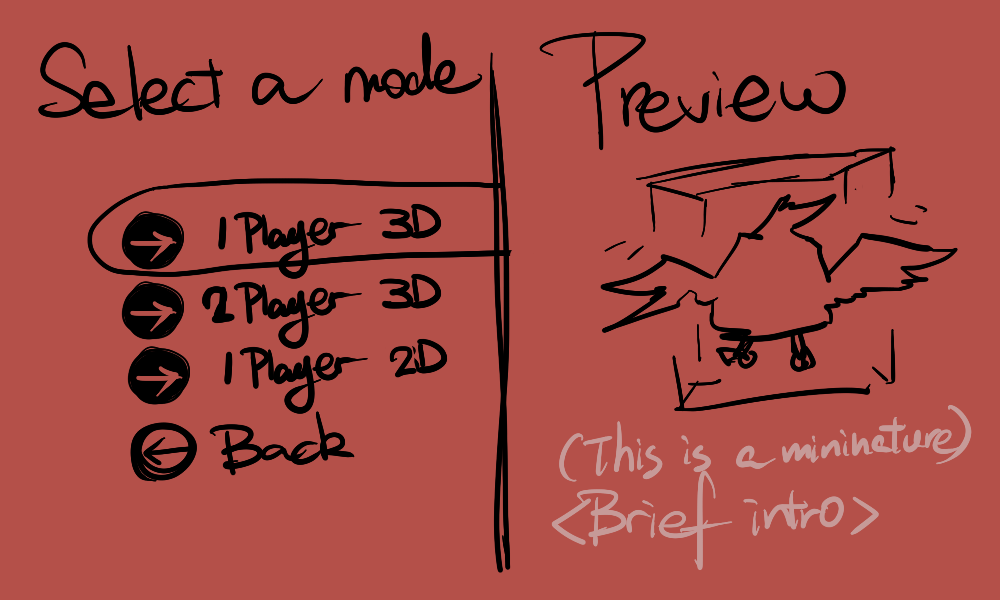 Select a mode
1 Player 3D
2 Player 3D
1 Player 2D
Back
Preview
(This is a mininature)
<Brief intro>